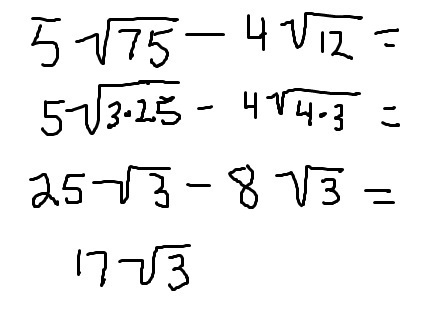 5√75 − 4√12 =
5√3·25 − 4√4·3 =
25√3 − 8√3 =
17√3